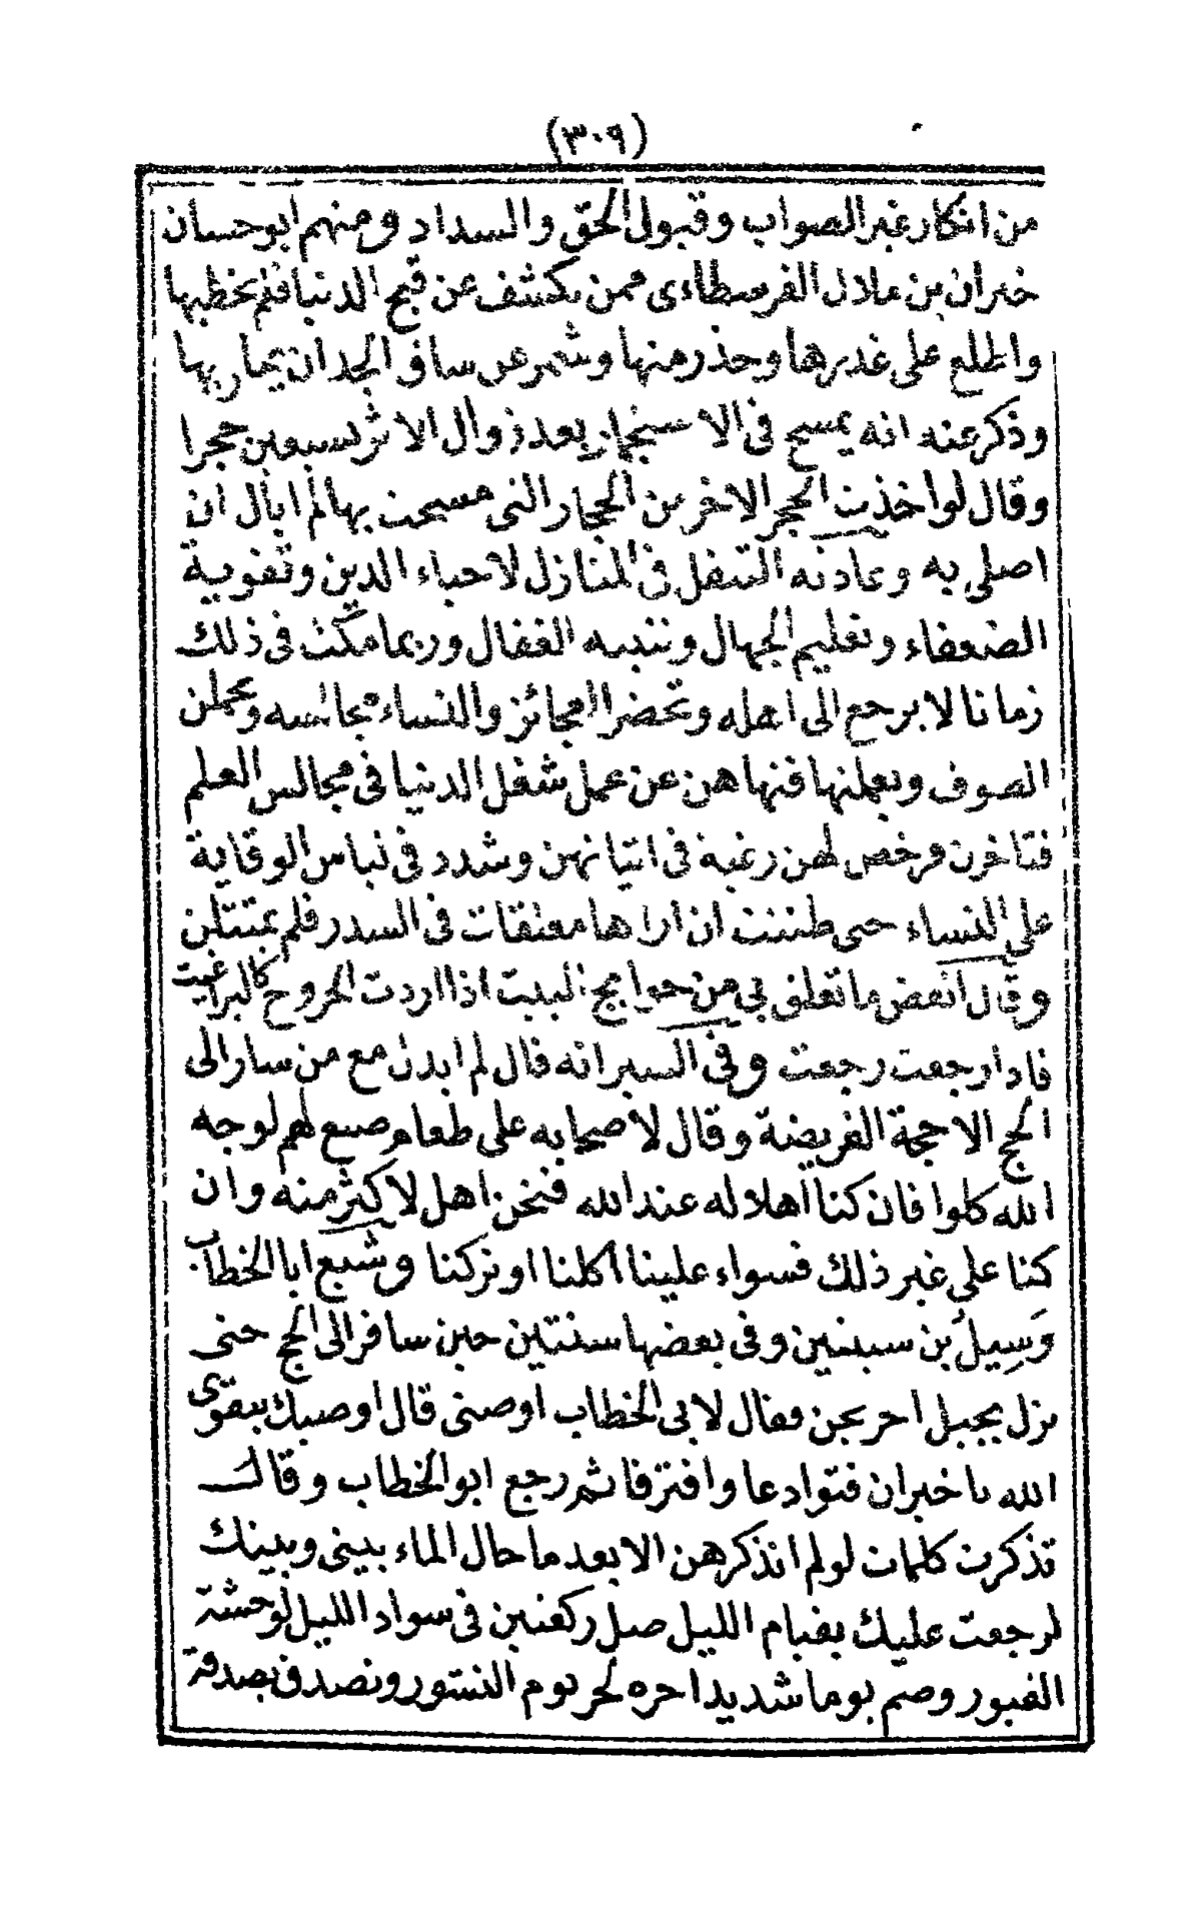 (٣٠٩)
من انكار غير الصواب وقبول الحق والسداد ومنهم ابو حسان
خيران بن ملال الفرسطاءى ممن تكشف عن قبح الدنيا فلم يخطبها
واطلع على غدرها وحذر منها وشمر عن ساق الجد ان يمار بها
وذكر عنه انه يمسح فى الاستجمار بعد زوال الاثر بسبعين حجرا
وقال لو اخذت الحجر الاخر من الحجار التى مسحت بها لم ابال ان
اصلى به وعادته التنفل فى المنازل لاحياء الدين وتقوية
الضعفاء وتعليم الجهال وتنبيه الغفال وربما مكث فى ذلك
زمانا لا يرجع الى اهله وتحضر العجائز والنساء مجالسه ويحملن
الصوف ويعملنها فنهاهن عن عمل شغل الدنيا فى مجالس العلم
فتاخرن فرخص لهن رغبة فى اتيانهن وشدد فى لباس الوقاية
على النساء حتى ظننت ان اراها معلقات فى السدر فلم يمتثلن
وقال انفض ما تعلق بى من حوايج البيت اذا اردت الخروج كالبراغيث
فاذا رجعت رجعت وفى السير انه قال لم ابدن مع من سار الى
الحج الا حجة الفريضة وقال لاصحابه على طعام صنع لهم لوجه
الله كلوا فان كنا اهلا له عند الله فنحن اهل لاكثر منه وان
كنا على غير ذلك فسواء علينا اكلنا او تركنا وشيع ابا الخطاب
وَسِيلُ بن سبنتين وفى بعضها سنتين حين سافر الى الحج حتى
نزل بجبل احريجن فقال لابى الخطاب اوصنى قال اوصيك بتقوى
الله يا خيران فتوادعا وافترقا ثم رجع ابو الخطاب وقال
تذكرت كلمات لو لم اتذكرهن الا بعد ما حال الماء بينى وبينك
لرجعت عليك بقيام الليل صل ركعتين فى سواد الليل لوحشة
القبور وصم يوما شديدا حره لحر يوم النشور وتصدق بصدقة